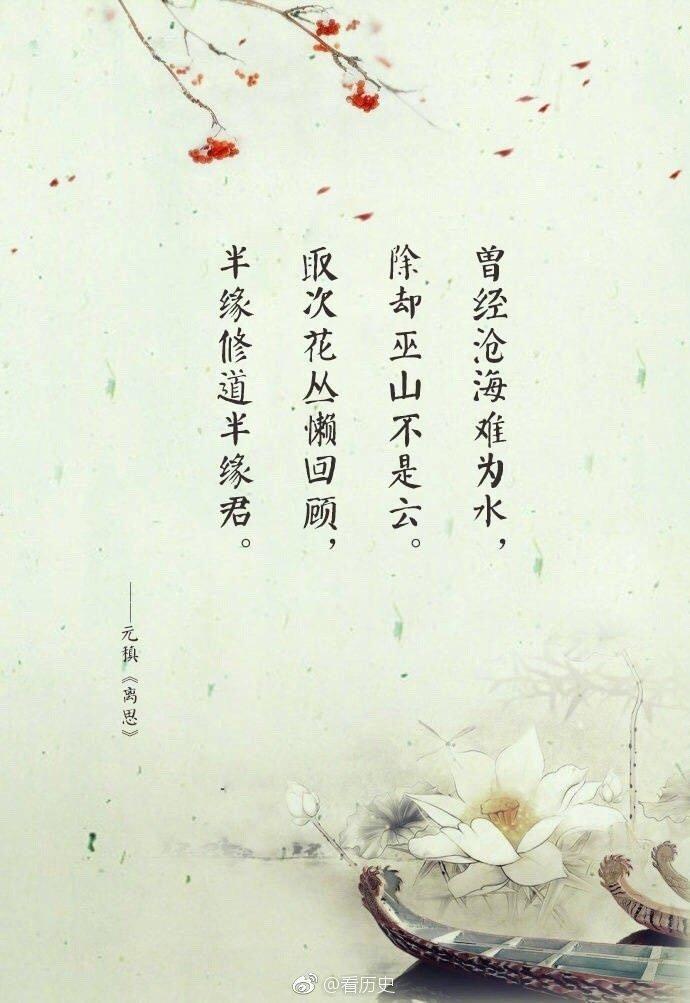 曾经沧海难为水，
除却巫山不是云。
取次花丛懒回顾，
半缘修道半缘君。
——元稹《离思》
@看历史